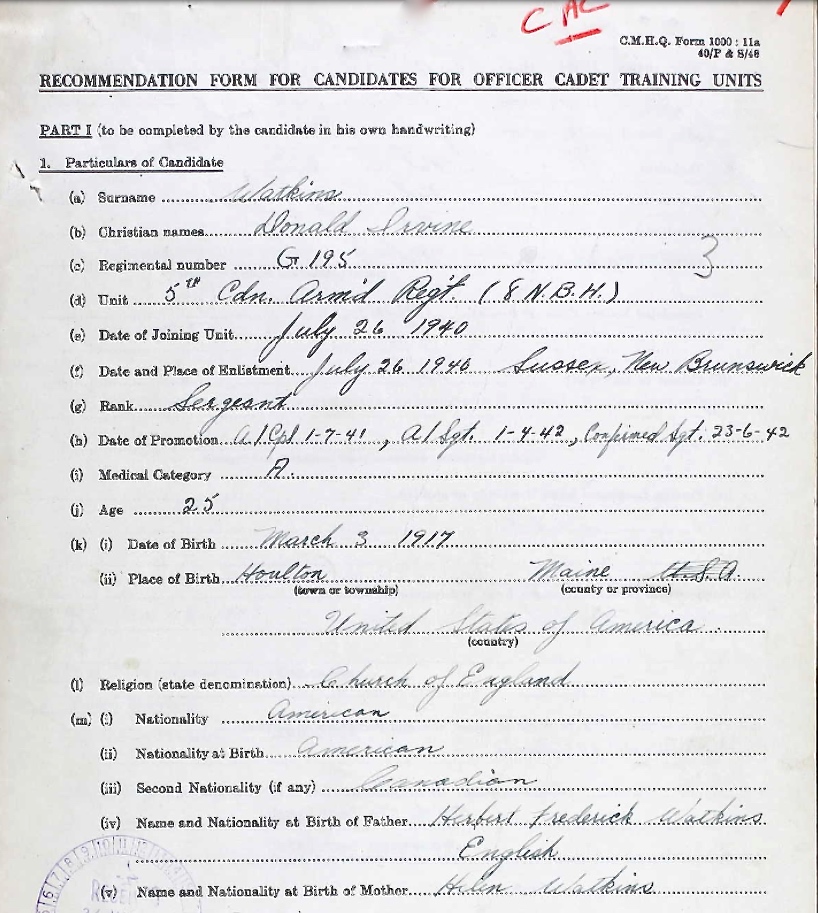 C AC
C.M.H.Q. Form 1000 : 11a
40/P & S/48
RECOMMENDATION FORM FOR CANDIDATES FOR OFFICER CADET TRAINING UNITS
PART I (to be completed by the candidate in his own handwriting)
1. Particulars of Candidate
(a) Surname Watkins
(b) Christian names Donald Irvine
(c) Regimental number G 195
3
(d) Unit 5th Cdn. Arm'd Reg't. (8 N.B.H.)
(e) Date of Joining Unit July 26 1940
(f) Date and Place of Enlistment July 26 1940 Sussex, New Brunswick
(g) Rank Sergeant
(h) Date of Promotion A/Cpl 1-7-41, A/Sgt. 1-4-42, Confirmed Sgt. 23-6-42
(i) Medical Category A.
(j) Age 25
(k) (i) Date of Birth March 3 1917
(ii) Place of Birth Houlton Maine U.S.A.
(town or township) (county or province)
United States of America.
(country)
(l) Religion (state denomination) Church of England
(m) (i) Nationality American
(ii) Nationality at Birth American
(iii) Second Nationality (if any) Canadian
(iv) Name and Nationality at Birth of Father Herbert Frederick Watkins
English
(v) Name and Nationality at Birth of Mother Helen Watkins